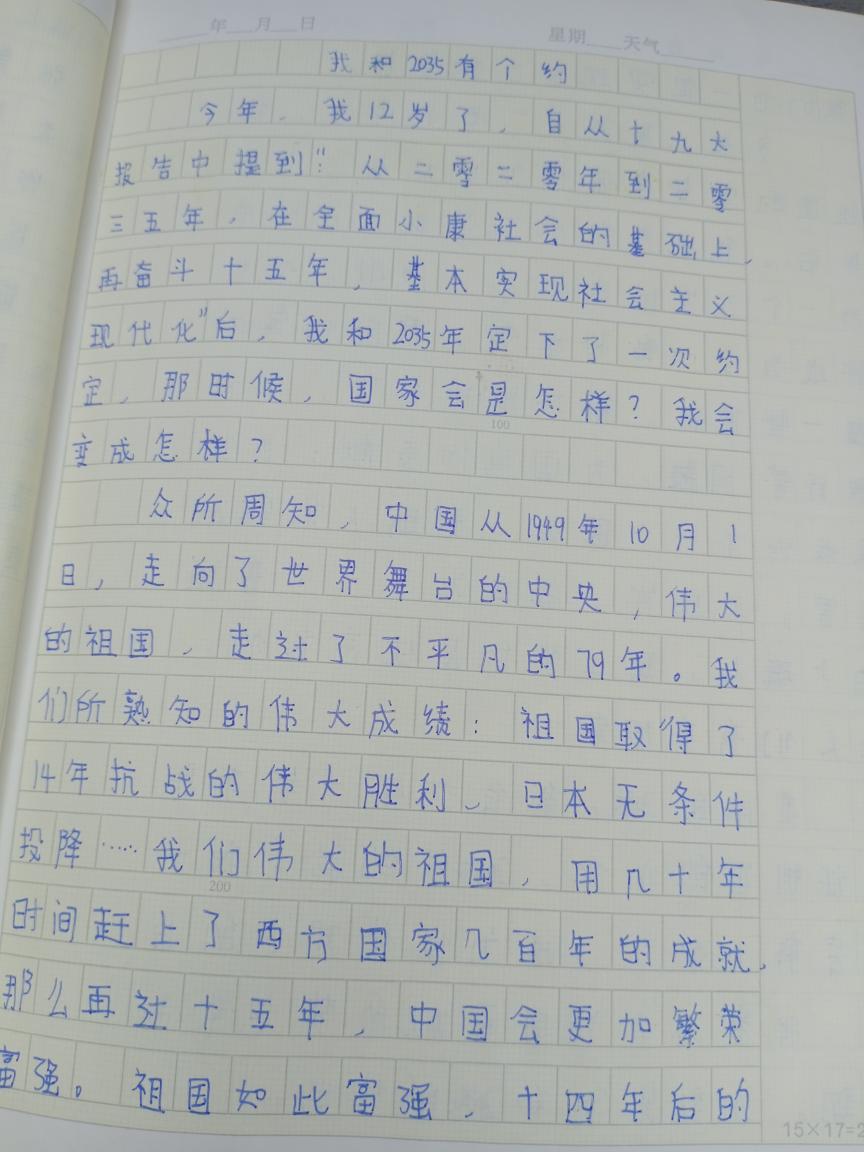 年 月 日 星期 天气
我和2035有个约
今年,我12岁了,自从十九大
报告中提到:“从二零二零年到二零
三五年,在全面小康社会的基础上,
再奋斗十五年,基本实现社会主义
现代化”后,我和2035年定下了一次约
定,那时候,国家会是怎样?我会
100
变成怎样?
众所周知,中国从1949年10月1
日,走向了世界舞台的中央,伟大
的祖国,走过了不平凡的79年。我
们所熟知的伟大成绩:祖国取得了
14年抗战的伟大胜利、日本无条件
投降……我们伟大的祖国,用几十年
200
时间赶上了西方国家几百年的成就,
那么再过十五年,中国会更加繁荣
富强。祖国如此富强,十四年后的
15×17=2